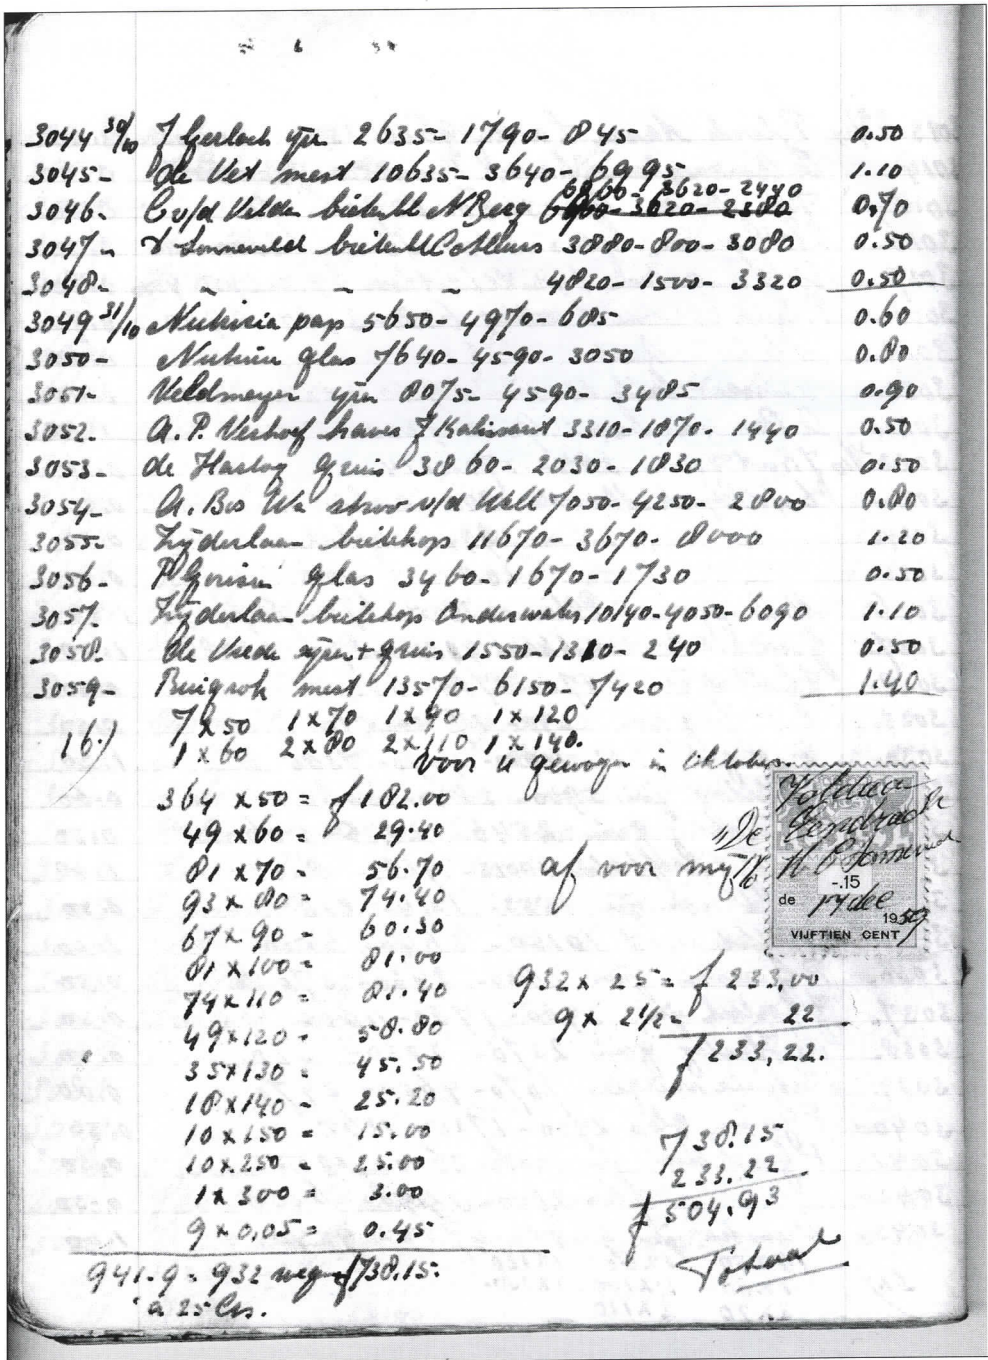 3044 30/10 J Gerlach ijzer 2635 - 1790 - 845 0.50
3045 - de Vet mest 10635 - 3640 - 6995 1.10
6060 - 3620 - 2440
3046 - C v/d Velden bietenbl N Berg 6000 - 3620 - 2380 0.70
3047 - Sonneveld bietenbl 3880 - 800 - 3080 0.50
3048 - " " " 4820 - 1500 - 3320 0.50
3049 31/10 Nutricia pap 5650 - 4970 - 685 0.60
3050 - Nutricia glas 7640 - 4590 - 3050 0.80
3051 - Veldmeyer ijzer 8075 - 4590 - 3485 0.90
3052 - A. P. Verhoef haver J 3310 - 1870 - 1440 0.50
3053 - de Hartog gruis 3860 - 2030 - 1830 0.50
3054 - A. Bos Wz stroo v/d Well 7050 - 4250 - 2800 0.80
3055 - Zijderlaan bietekops 11670 - 3670 - 8000 1.20
3056 - P glas 3460 - 1670 - 1730 0.50
3057 - Zijderlaan bietekops Onderwater 10140 - 4050 - 6090 1.10
3058 - de Vrede + gruis 1550 - 1310 - 240 0.50
3059 - Buigrok mest 13570 - 6150 - 7420 1.40
7 x 50 1 x 70 1 x 90 1 x 120
16.) 1 x 60 2 x 80 2 x 110 1 x 140.
voor u gewogen in Oktober.
364 x 50 = f 182.00
49 x 60 = 29.40
81 x 70 - 56.70
93 x 80 = 74.40
67 x 90 - 60.30
81 x 100 = 81.00
74 x 110 = 81.40
49 x 120 - 58.80
35 x 130 = 45.50
18 x 140 - 25.20
10 x 150 = 15.00
10 x 250 = 25.00
1 x 300 = 3.00
9 x 0,05 = 0.45
941 - 9 = 932 weg f 738.15.
a 25 Cts.
af voor mij
Voldaan
"De Eendracht
-.15
de 17 dec 1959
VIJFTIEN CENT
932 x 25 = f 233,00
9 x 2½ - 22
f 233,22.
738.15
233.22
f 504.93
Totaal